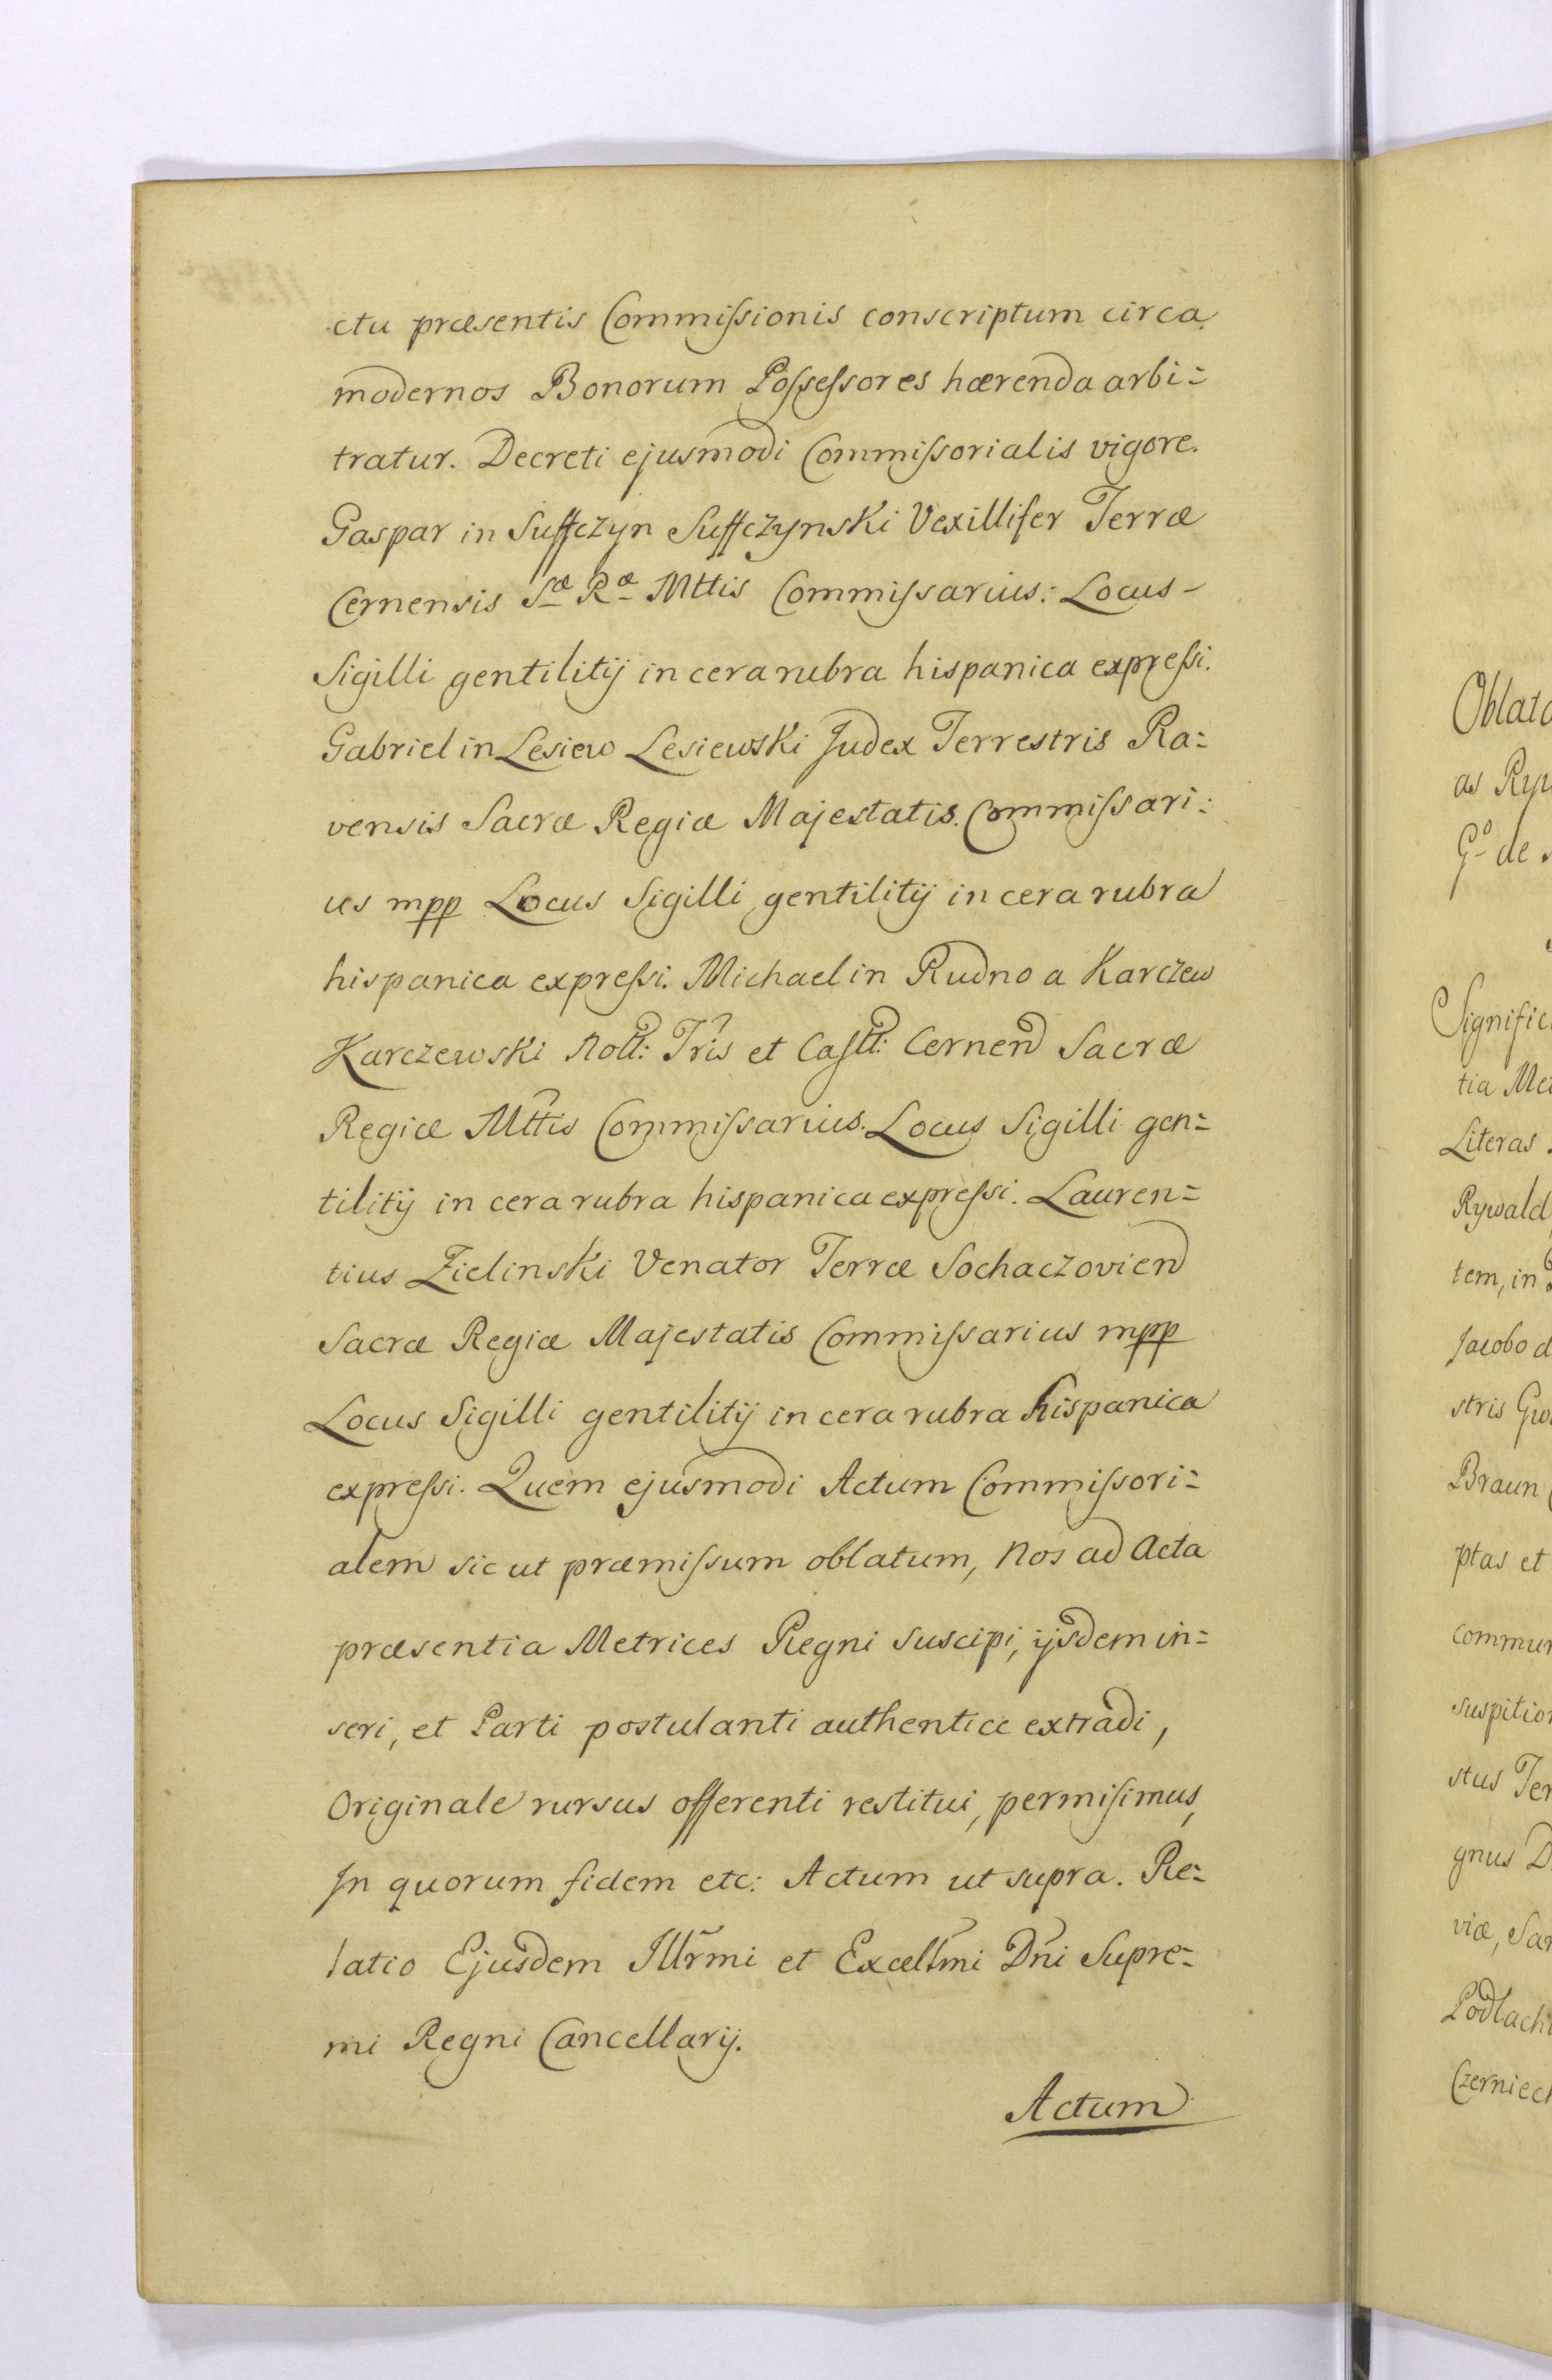 ctu præsentis Commissionis conscriptum circa
modernos Bonorum Possessores hærenda arbi=
tratur. Decreti ejusmodi Commissorialis vigore.
Gaspar in Suffczyn Suffczynski Vexillifer Terræ
Cernensis Sæ Ræ Mttis Commissarius: Locus -
Sigilli gentilitij in cera rubra hispanica expressi.
Gabriel in Lesiew Lesiewski Judex Terrestris Ra=
vensis Sacræ Regiæ Majestatis Commissari=
us mpp Locus Sigilli gentilitij in cera rubra
hispanica expressi. Michael in Rudno a Karczew
Karczewski Nott: Tris et Castt: Cernend Sacræ
Regiæ Mttis Commissarius. Locus Sigilli gen=
tilitij in cera rubra hispanica expressi. Lauren=
tius Zielinski Venator Terræ Sochaczoviend
Sacræ Regiæ Majestatis Commissarius mpp
Locus Sigilli gentilitij in cera rubra hispanica
expressi. Quem ejusmodi Actum Commissori=
alem sic ut præmissum oblatum, Nos ad Acta
præsentia Metrices Regni suscipi, ijsdem in=
seri, et Parti postulanti authentice extradi,
Originale rursus offerenti restitui, permisimus,
In quorum fidem etc: Actum ut supra. Re=
latio Ejusdem Illrmi et Excellmi Dni Supre=
mi Regni Cancellarij.
Actum
Oblat
as Ryw
Go de
Signific
tia Me
Literas
Rywald
tem, in
Jacobo d
stris
Braun
ptas et
commun
suspition
stus Ter
gnus D
viæ, San
Podlach
Czerniech